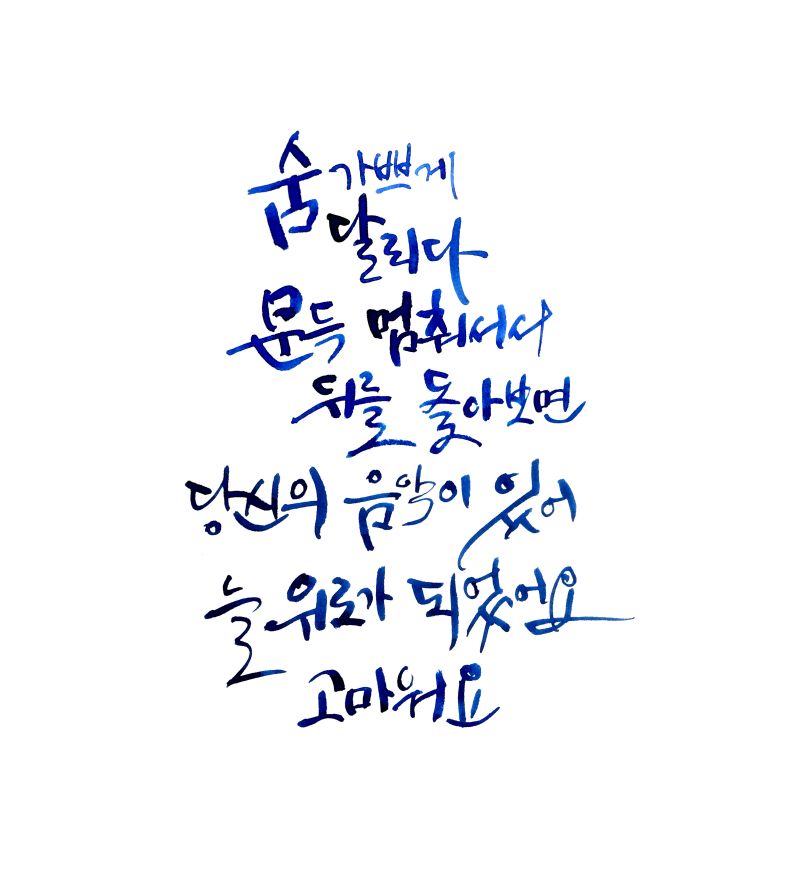 숨 가쁘게
달리다
문득 멈춰서서
뒤를 돌아보면
당신의 음악이 있어
늘 위로가 되었어요
고마워요